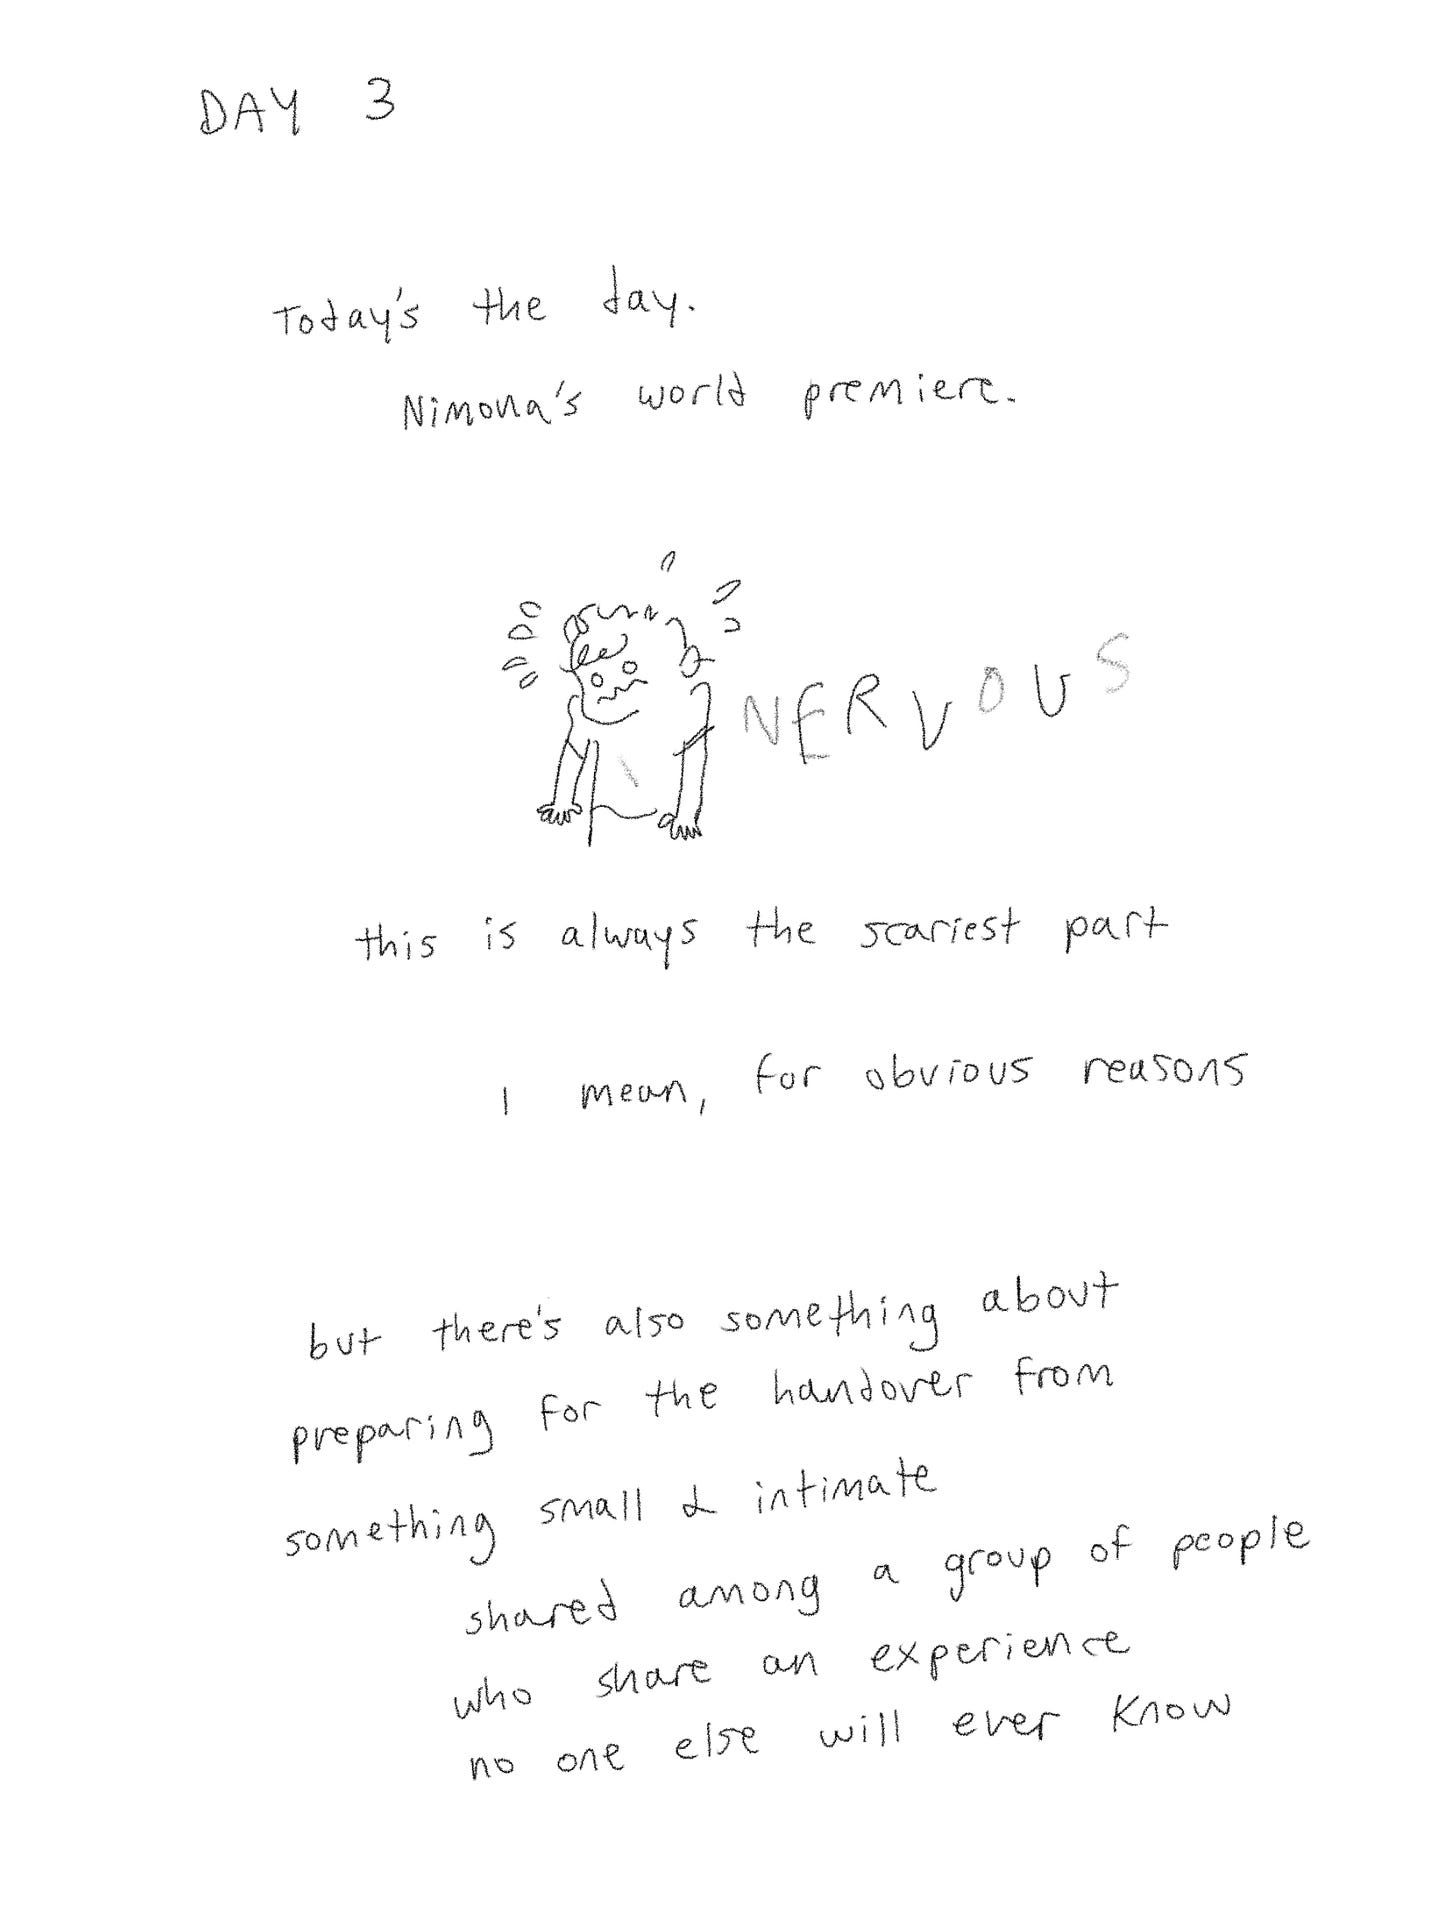 DAY 3
Today's the day.
Nimona's world premiere.
NERVOUS
this is always the scariest part
I mean, for obvious reasons
but there's also something about
preparing for the handover from
something small & intimate
shared among a group of people
who share an experience
no one else will ever know